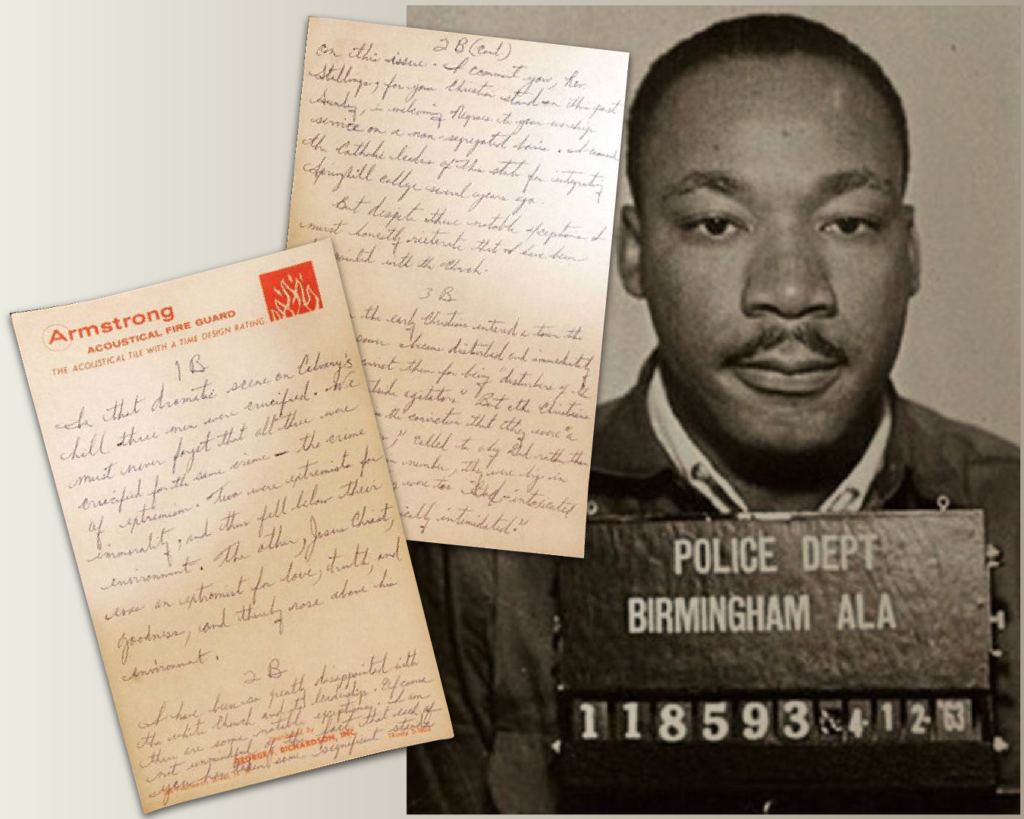 Armstrong
ACOUSTICAL FIRE GUARD
THE ACOUSTICAL TILE WITH A TIME DESIGN RATING
1 B
In that dramatic scene on Calvary's
hill three men were crucified. We
must never forget that all three were
crucified for the same crime — the crime
of extremism. Two were extremists for
immorality, and thus fell below their
environment. The other, Jesus Christ,
was an extremist for love, truth, and
goodness, and thereby rose above his
environment.
2 B
I have been so greatly disappointed with
the white church and its leadership. Of course
there are some notable exceptions. I am
not unmindful of the fact that each of
you has taken some significant stands
GEORGE F. RICHARDSON, INC.
2 B (cont)
on this issue. I commend you, Rev
Stallings, for your Christian stand on this past
Sunday, in welcoming Negroes to your worship
service on a non-segregated basis. I commend
the Catholic leaders of this state for integrating
Springhill college several years ago
But despite these notable exceptions I
must honestly reiterate that I have been
with the church.
3 B
the early Christians entered a town the
power disturbed and immediately
them for being "disturbers of the
agitators." But the Christians
the conviction that they were "a
" called to obey God rather than
number, they were big in
were too "God-intoxicated
intimidated."
POLICE DEPT
BIRMINGHAM ALA
118593 4-12-63